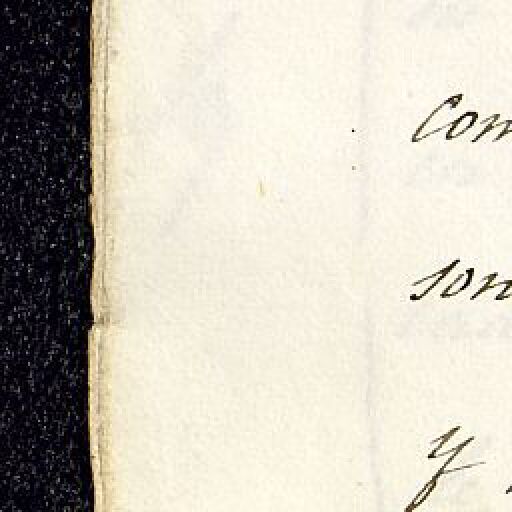 com
son
y